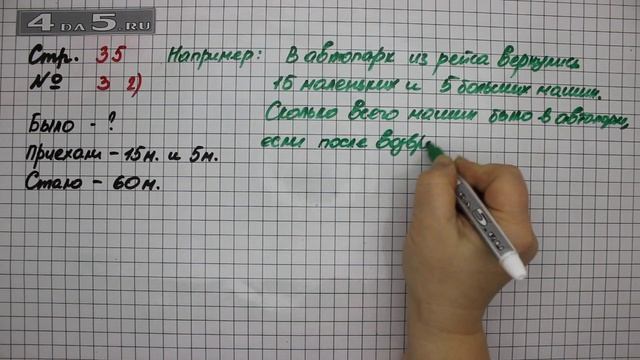 4 DA 5.RU
Стр. 35
№ 3 2)
Было - ?
Приехали - 15м. и 5м.
Стало - 60м.
Например: В автопарк из рейса вернулись
15 маленьких и 5 больших машин.
Сколько всего машин было в автопарке,
если после возвр
4 DA 5.RU